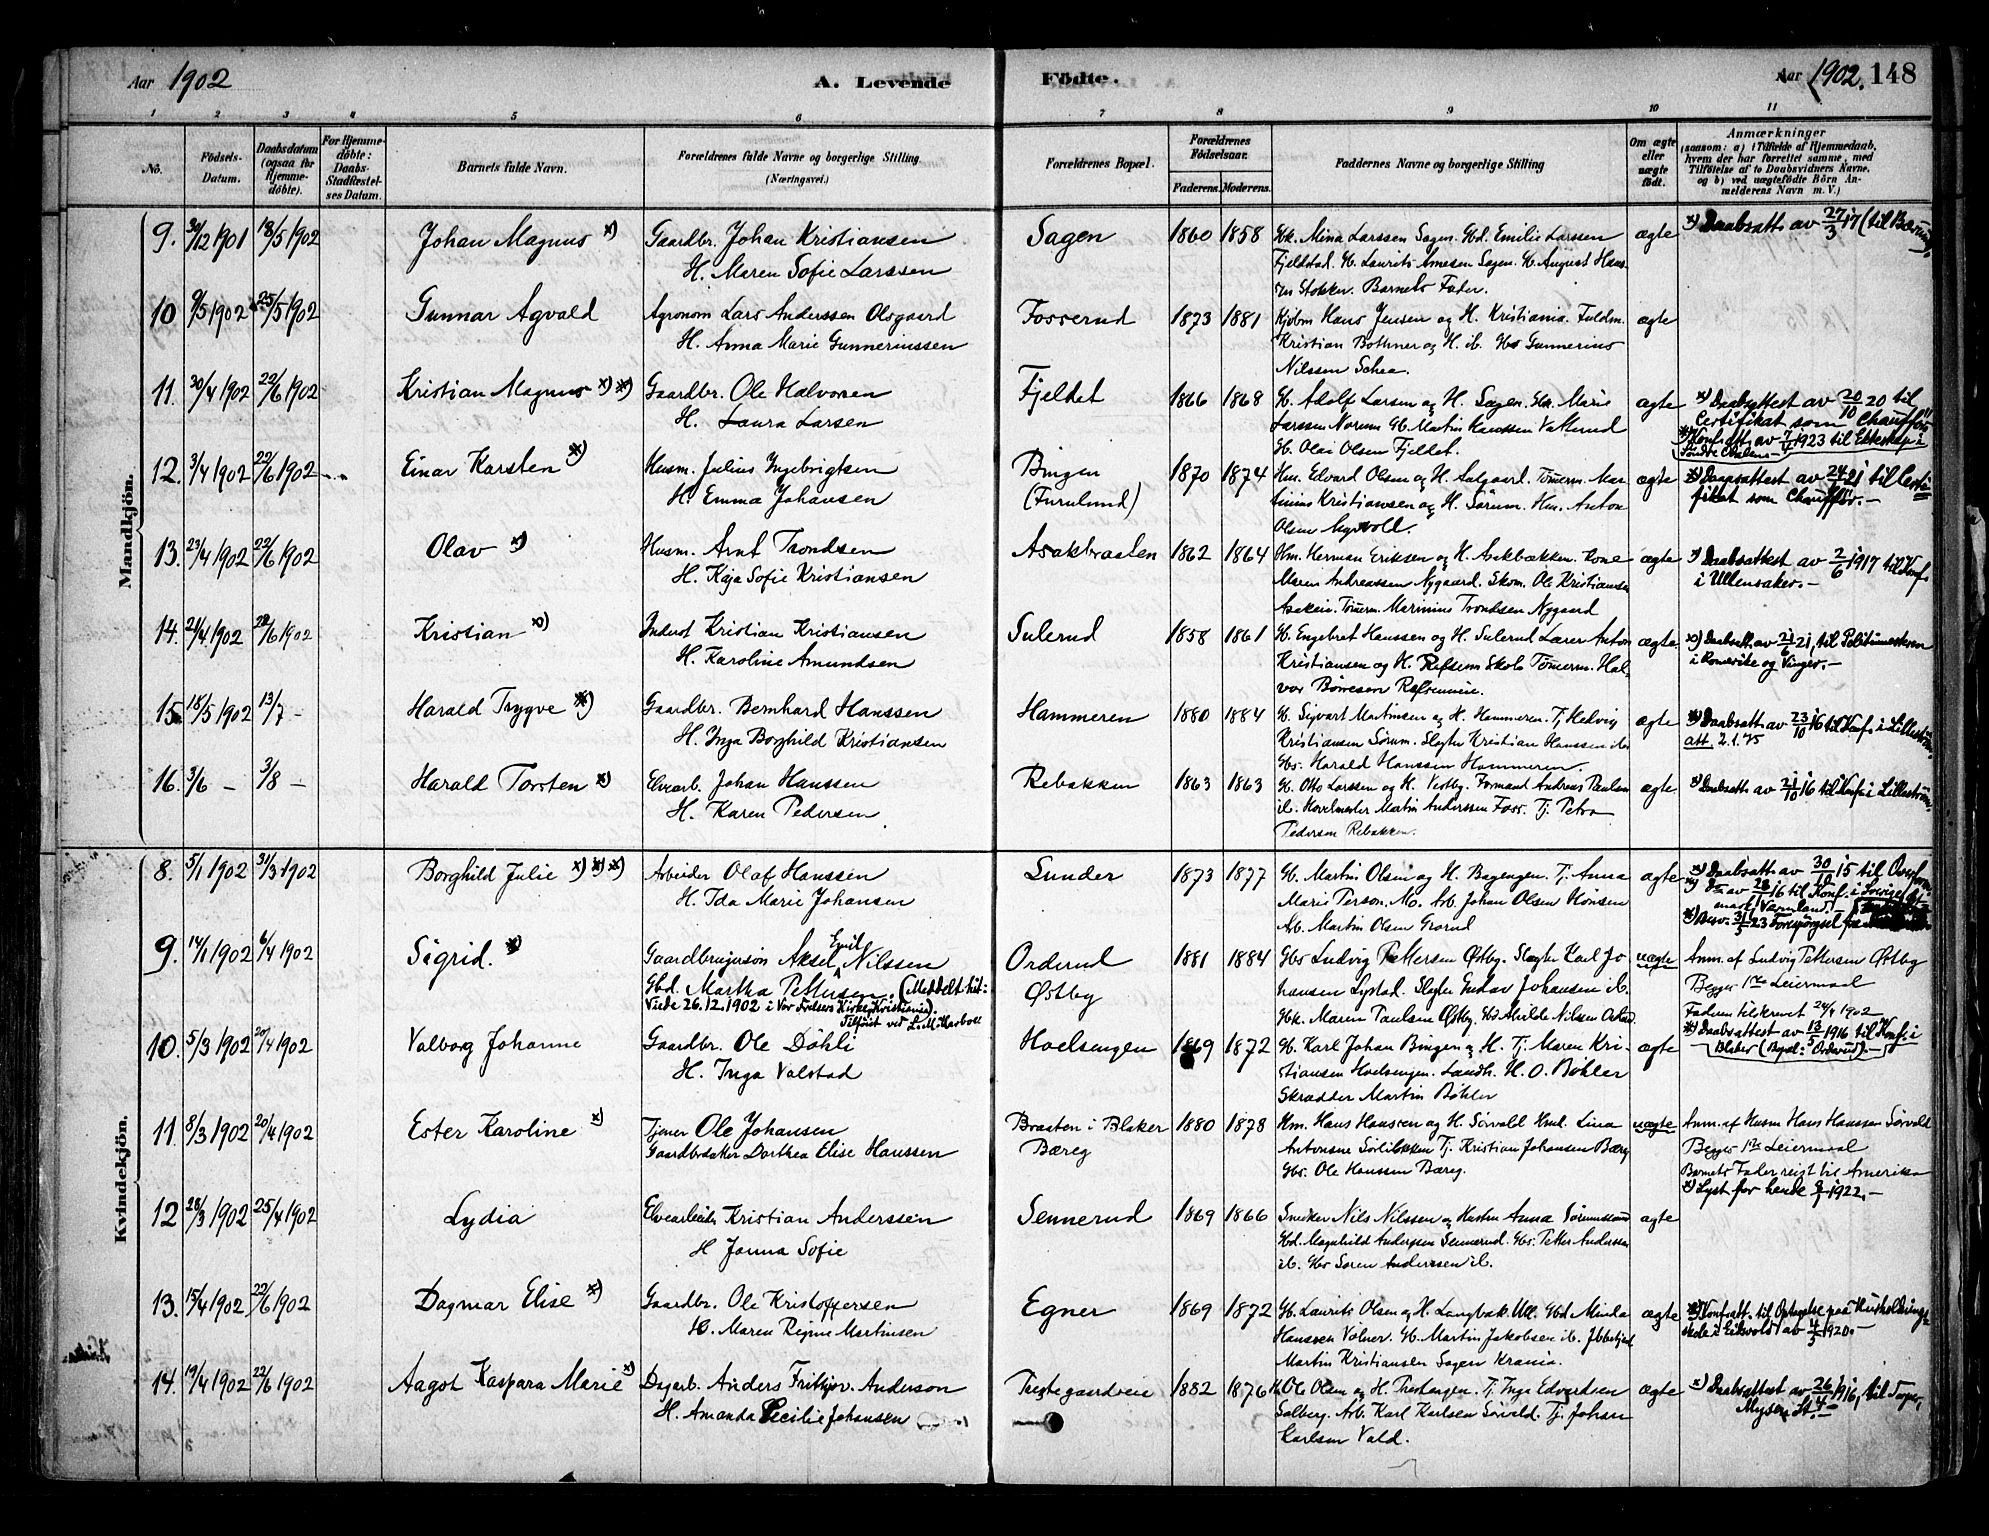 Aar 1902
A. Levende
Födte.
Aar 1902. 148
1 2 3 4 5 6 7 8 9 10 11
No.
Födsels-Datum.
Daabsdatum (ogsaa for Hjemme-döbte).
For Hjemme-döbte: Daabs-Stadfæstel-ses Datum.
Barnets fulde Navn.
Forældrenes fulde Navne og borgerlige Stilling.
(Næringsvei.)
Forældrenes Bopæl.
Forældrenes Födselsaar.
Faderens. Moderens.
Faddernes Navne og borgerlige Stilling
Om ægte eller uægte födt.
Anmærkninger
(saasom: a) i Tilfælde af Hjemmedaab, hvem der har forrettet samme, med Tilföielse af to Daabsvidners Navne, og b) ved uægtefödte Börn An-melderens Navn m. V.)
Mandkjön.
9. 30/12 1901 18/5 1902 Johan Magnus x) Gaardbr. Johan Kristiansen
H. Maren Sofie Larssen
Sagen 1860 1858 Gk. Mina Larssen Sagen. Gd. Emilie Larssen
Fjeldstad. G. Laurits Arnesen Sagen. G. August Hans-
sen Stokker. Barnets Fader.
ægte x) Daabsatt. av 27/3 17 (til Bærum).
10 9/5 1902 25/5 1902 Gunnar Agvald Agronom Lars Anderssen Olsgaard
H. Anna Marie Gunnerinssen
Fosserud 1873 1881 Kjöbm Hans Jensen og H. Kristiania. Fuldm.
Kristian Bothner og H. ib. Gs Gunnerius
Nilssen Schea.
ægte
11. 30/4 1902 22/6 1902 Kristian Magnus x) xx) Gaardbr. Ole Halvorsen
H. Laura Larsen
Fjeldet 1866 1868 G. Adolf Larsen og H. Sagen. Gk. Marie
Larssen Norum G. Martin Hanssen Vatterud
G. Olai Olsen Fjeldet.
ægte x) Daabsattest av 20/10 20 til
Certifikat som Chaufför.
12. 3/4 1902 22/6 1902 Einar Karsten x) Husm. Julius Ingebrigtsen
H. Emma Johansen
Bingen
(Furulund)
1870 1874 Hm. Edvard Olsen og H. Aalgaard. Tömerm. Mar-
tinius Kristianssen og H. Sörum. Hm. Anton
Olsen Myrvold.
ægte x) Daabsattest av 24/ 21 til Certi-
fikat som Chaufför. -
13. 23/4 1902 22/6 1902 Olav x) Husm. Arnt Trondsen
H. Kaja Sofie Kristiansen
Asakbraaten 1862 1864 Hm. Herman Eriksen og H. Asakbækken. Kone
Maren Andreassen Nygaard. Skom. Ole Kristiansen
Asakeie. Tömerm. Marinius Trondsen Nygaard
ægte x) Daabsattest av 2/6 1917 til Konf.
i Ullensaker. -
14. 21/4 1902 22/6 1902 Kristian x) Inderst Kristian Kristiansen
H. Karoline Amundsen
Sulerud 1858 1861 G. Engebret Hanssen og H. Sulerud Lærer Anton
Kristiansen og H. Refsum Skole Tömerm. Hal-
vor Börresen Refsumeie.
ægte. x) Daabsatt. av 21/6 21, til Politimesteren
i Romerike og Vinger. -
15. 18/5 1902 13/7 - Harald Trygve x) Gaardbr. Bernhard Hanssen
H. Inga Borghild Kristiansen
Hammeren 1880 1884 G. Sigvart Martinsen og H. Hammeren. Tj. Hedvig
Kristiansen Sörum. Slagter Kristian Hanssen ib.
Gs. Harald Hanssen Hammeren.
ægte x) Daabsatt. av 23/10 16 til Konf. i Lilleström.
att. 2.1.75
16. 3/6 - 3/8 - Harald Torsten x) Elvearb. Johan Hanssen
H. Karen Pedersen
Rebakken 1863 1863 G. Otto Larssen og H. Vestby. Formand Andreas Paulsen
ib. Hovelmester Martin Anderssen Foss. Tj. Petra
Pedersen Rebakken.
ægte x) Daabsatt. av 21/10 16 til Konf. i Lilleström.
Kvindekjön.
8. 5/1 1902 31/3 1902 Borghild Julie x) x) x) Arbeider Olaf Hanssen
H. Ida Marie Johansen
Lunder 1873 1877 G. Martin Olsen og H. Bagengen. Tj. Anna
Marie Person. M. Arb. Johan Olsen Hönsen
Arb. Martin Olsen Grorud
ægte x) Daabsatt. av 30/10 15 til
av 28/ 16 til Konf. i Sverige
Varmland.
9. 14/1 1902 6/4 1902 Sigrid. x) Gaardbrugersön Aksel Emil Nilssen
Gbd. Martha Pettersen. (Meddelt hit:
Viede 26.12.1902 i Vor Frelsers Kirke, Kristiania).
Tilföiet ved
Orderud
Östby
1881 1884 Gbs Ludvig Pettersen Östby. Slagter Karl Jo-
hansen Lystad. Slagter Gustav Johansen ib.
Gbk. Maren Paulsen Östby. Gd Nilsen
uægte Anm. af Ludvig Pettersen Östby
Begges 1ste Leiermaal
Faderen tilskrevet 24/4 1902
x) Daabsattest av 13/5 1916 til Konf. i
Blaker (Bopæl: Orderud). -
10. 5/3 1902 20/4 1902 Valborg Johanne Gaardbr. Ole Döhli
H. Inga Valstad
Hoelsengen 1869 1872 G. Karl Johan Bingen og H. Tj. Maren Kri-
stiansen Hoelsengen. Landh. H. O. Böhler
Skrædder Martin Böhler
ægte
11. 8/3 1902 20/4 1902 Ester Karoline x) Tjener Ole Johansen
Gaardbrdatter Dorthea Elise Hanssen
Braaten i Blaker
Bæreg
1880 1878 Hm. Hans Hanssen og H. Sörvald Hmd. Lina
Antonsene Sölibækken Tj. Kristian Johansen Bæreg
Gbs. Ole Hanssen Bæreg.
uægte Anm. af Husm Hans Hanssen Sörvald
Begges 1ste Leiermaal
Barnets Fader reist til Amerika
x) Lyst for hende 1922. -
12 28/3 1902 25/4 1902 Lydia Elvearbeider Kristian Anderssen
H Janna Sofie
Sennerud 1869 1866 Snedker Nils Nilssen og Hustru Anna Sörumsand
Gbd. Magnhild Anderssen Sennerud. Gbs. Petter Anderssen
ib. Gbs Sören Anderssen ib.
ægte
13. 15/4 1902 22/6 1902 Dagmar Elise x) Gaardbr. Ole Kristoffersen
H. Maren Regine Martinsen
Egner 1869 1872 G. Laurits Olsen og H. Langbak. Ull. Gbd Minda
Hanssen Volner. G. Martin Jakobsen ib.
Martin Kristiansen Sagen Krania.
ægte x) Konfratt. til Optagelse paa Husholdnings-
skole i Eidsvold av 4/3 1920. -
14. 19/4 1902 22/6 1902 Aagot Kaspara Marie x) Dagarb. Anders Fritkjov. Anderson
H. Amanda Cecilie Johansen
Prestegaardseie 1882 1876 G. Ole Olsen og H. Prestengen. Tj. Inga Edvardsen
Solberg. Arb. Karl Karlsen Sörvald. Tj. Johan
Karlsen Vald.
ægte x) Daabsattest av 26/4 1916, til
Mysen St.